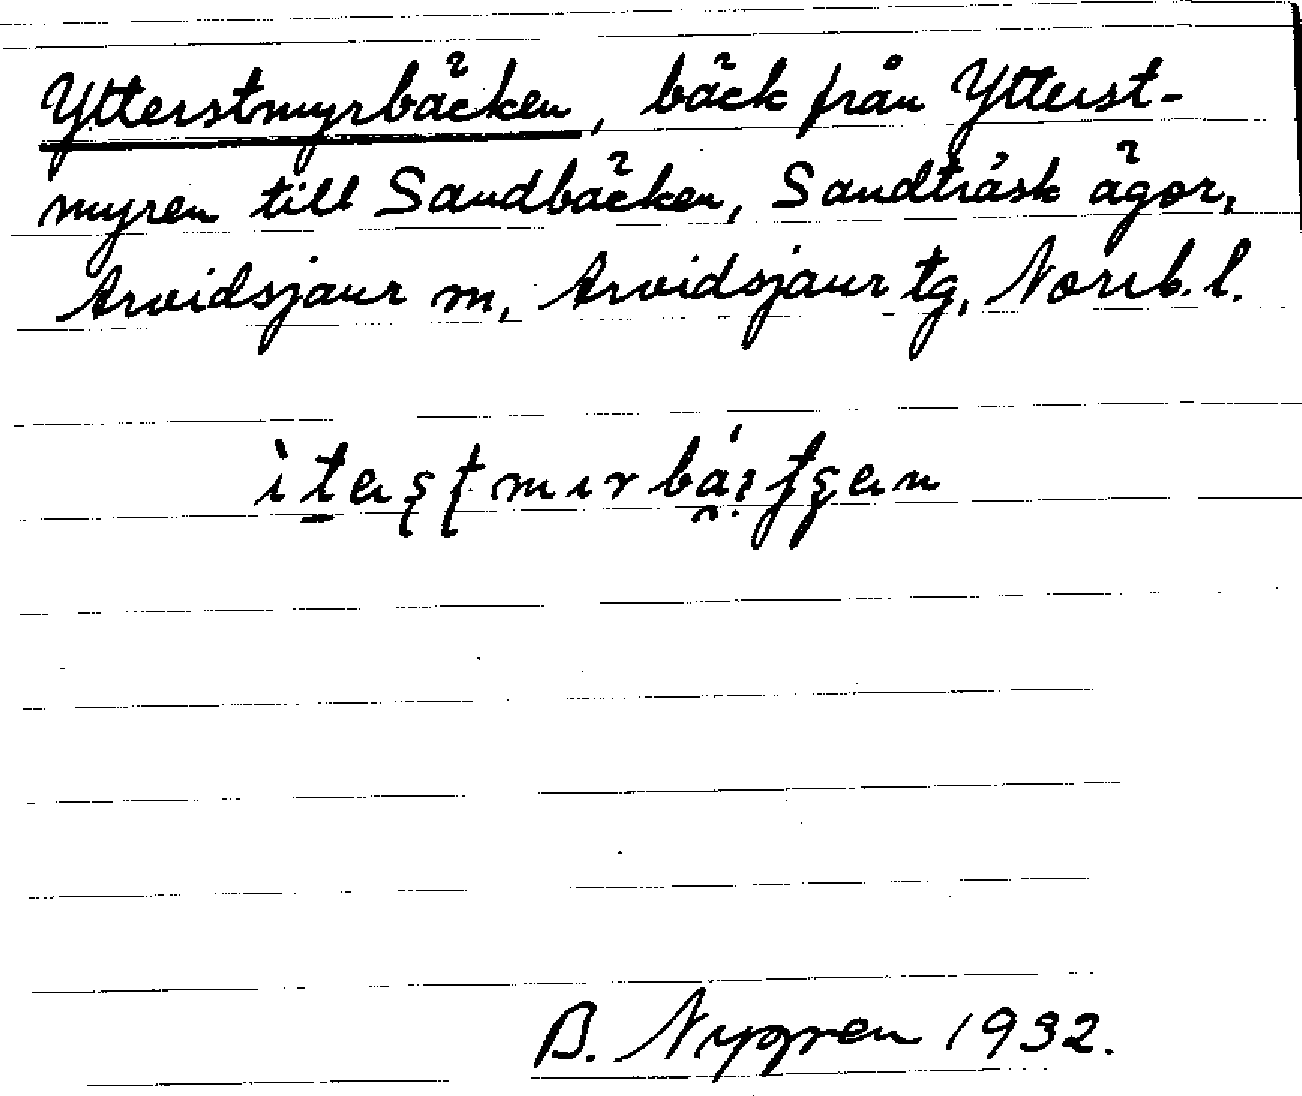 Ytterstmyrbäcken, bäck från Ytterst-
myren till Sandbäcken, Sandträsk ägor,
Arvidsjaur sn, Arvidsjaur tg, Norrb. l.
B. Nygren 1932.